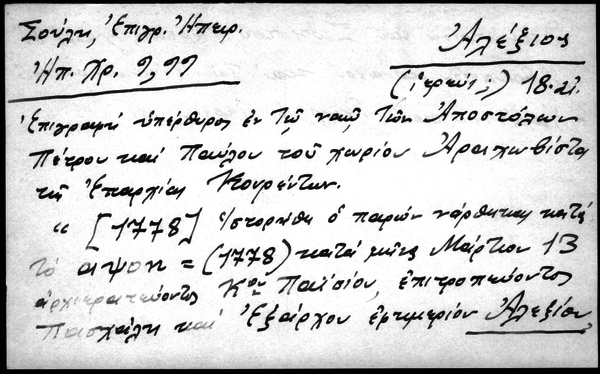 Σούλη, Ἐπιγρ. Ἠπειρ.
Ἠπ. Χρ. 9, 99
Ἀλέξιος
(ἱερεύς;) 18. αἰ.
Ἐπιγραφή ὑπέρθυρος ἐν τῷ ναῷ τῶν Ἀποστόλων
Πέτρου καί Παύλου τοῦ χωρίου Ἀραχωβίστα
τῆς Ἐπαρχίας Κουρέντων.
“ [1778] ἱστορήθη ὁ παρών νάρθηκας κατά
τό αψοη = (1778) κατά μῆνα Μάρτιον 13
ἀρχιερατεύοντος Κου Παϊσίου, ἐπιτροπεύοντος
Πασχάλη καί Ἐξάρχου ἐφημερίου Ἀλεξίου